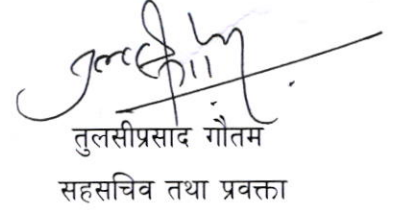 तुलसीप्रसाद गौतम
सहसचिव तथा प्रवक्ता